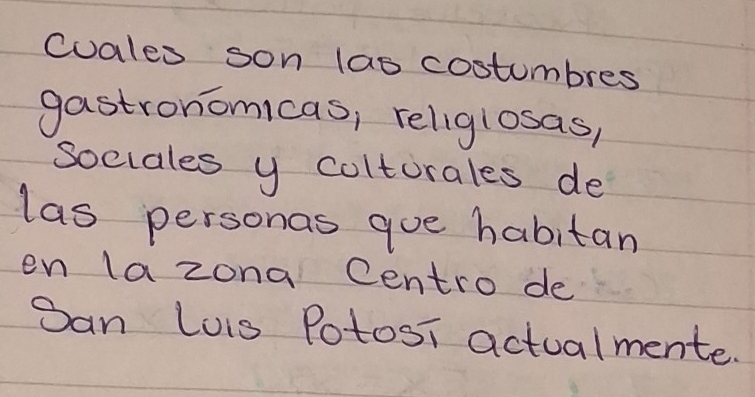 cuales son las costumbres
gastronómicas, religiosas,
sociales y culturales de
las personas que habitan
en la zona Centro de
San Luis Potosí actualmente.